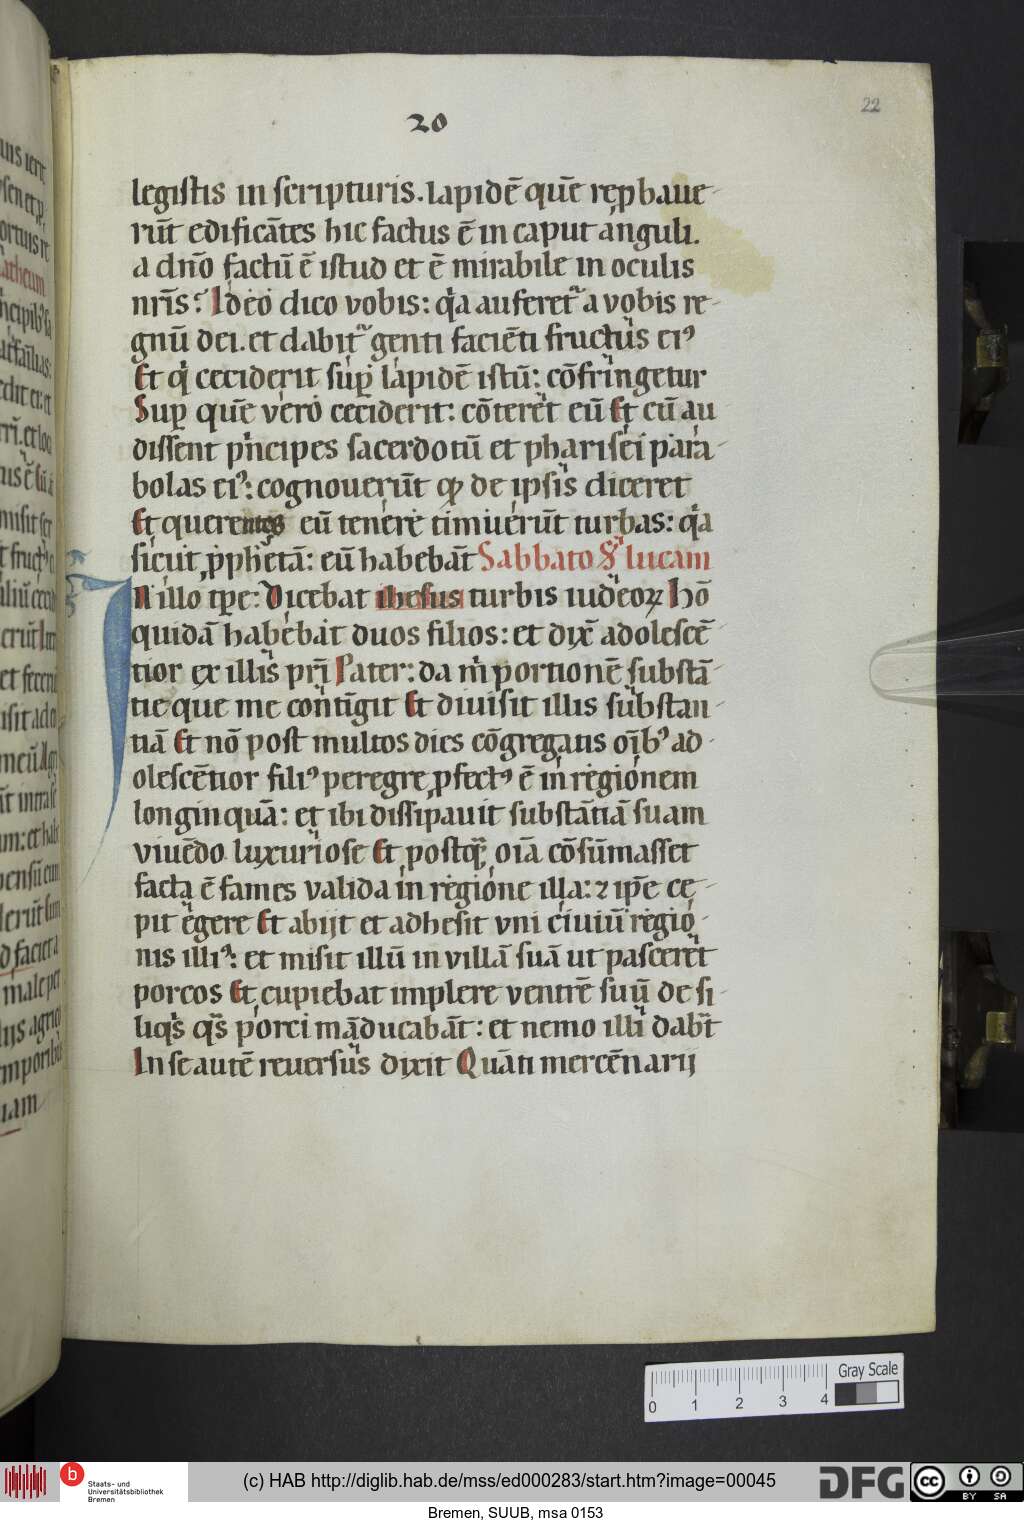 22
20
legistis in scripturis. lapidē quē rep̱baue-
rūt edificātes hic factus ē in caput anguli.
a dn̄o factū ē istud et ē mirabile in oculis
nr̄is? Ideo dico vobis: qͥa auferetᷣ a vobis re-
gnū dei. et dabitᷣ genti faciēti fructus eiꝰ
Et qͥ ceciderit sup̱ lapidē istū: cōfringetur
Sup̱ quē vero ceciderit: cōteret eū Et cū au
dissent pͥncipes sacerdotū et pharisei para-
bolas eiꝰ: cognouerūt ꝙ de ipsis diceret
Et querentes eū tenere timuerūt turbas: qͥa
sicut ꝓphetā: eū habebāt Sabbato S lucam
In illo tp̄e: Dicebat ihesus turbis iudeoꝝ Hō
quidā habebat duos filios: et dix̄ adolescē
tior ex illis pr̄i Pater: da mͥ portionē substā-
tie que me contīgit Et diuisit illis substan-
tiā Et nō post multos dies cōgregatis oīb' ad-
olescētior filiꝰ peregre ꝓfectꝰ ē in regionem
longinquā: et ibi dissipauit substātiā suam
viuēdo luxuriose Et postqᷓ oīa cōsūmasset
facta ē fames valida in regione illa: ⁊ ip̄e ce-
pit egere Et abijt et adhesit vni ciuiū regio-
nis illiꝰ: et misit illū in villā suā ut pasceret
porcos Et cupiebat implere ventrē suū de si-
liqͥs qᷓs porci māducabāt: et nemo illi dabat
In se autē reuersus dixit Quāti mercēnarij
0 1 2 3 4
Gray Scale
b
Staats- und
Universitätsbibliothek
Bremen
(c) HAB http://diglib.hab.de/mss/ed000283/start.htm?image=00045
DFG
cc BY SA
Bremen, SUUB, msa 0153